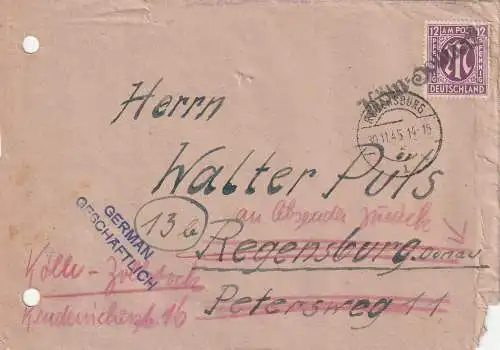 12 AM POST 12
PFENNIG PFENNIG
DEUTSCHLAND
REGENSBURG
30.11.45.14-15
Herrn
Walter Puls
13b
an Absender zurück
Regensburg. Donau
Petersweg 11
GERMAN
GESCHÄFTLICH
Köln - Zollstock
16